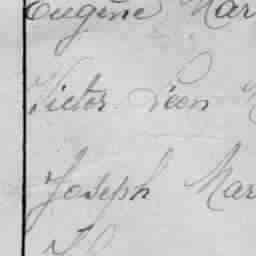 Eugène Mar
Victor Léon
Joseph Mar